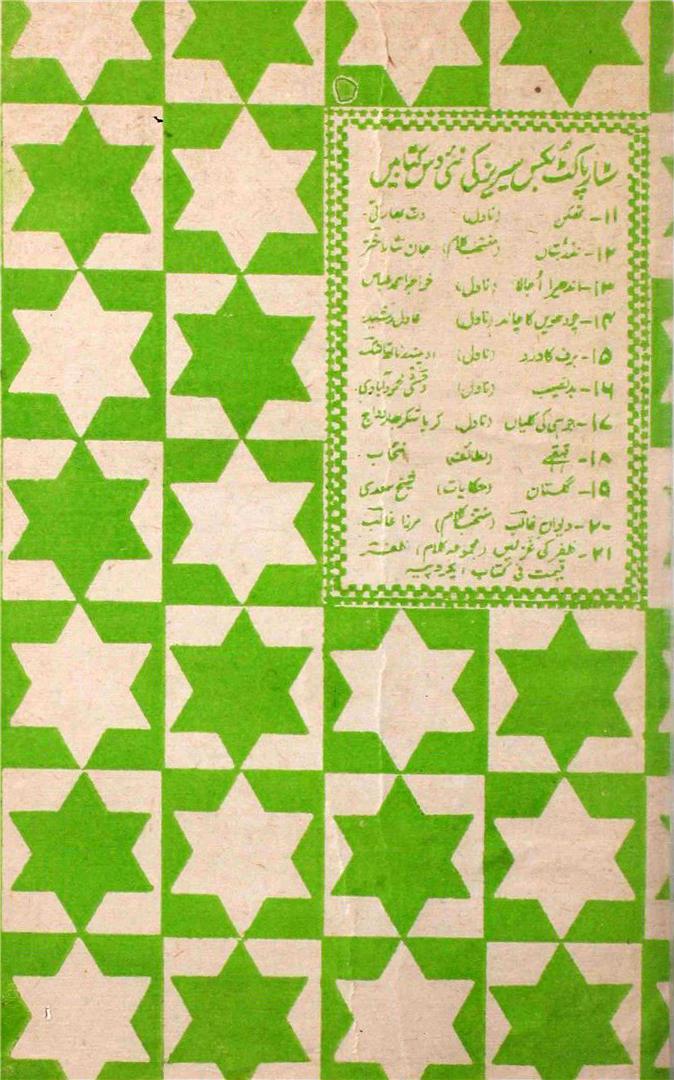 سٹار پاکٹ بکس سیریز کی نئی دس کتابیں
۱۱- تھکن (ناول) دت بھارتی
۱۲- (منتخب کلام) جان نثار اختر
۱۳- اندھیرا اُجالا (ناول) خواجہ احمد عباس
۱۴- چودھویں کا چاند (ناول) عادل رشید
۱۵- برف کا درد (ناول) اوپندر ناتھ اشک
۱۶- بدنصیب (ناول) وحشی محمود آبادی
۱۷- کی کلیاں (ناول) کرپا شنکر بھاردواج
۱۸- قہقہے (لطائف) انتخاب
۱۹- گلستان (حکایات) شیخ سعدی
۲۰- دیوان غالب (منتخب کلام) مرزا غالب
۲۱- ظفر کی غزلیں (مجموعہ کلام) ظفر
قیمت فی کتاب ایک روپیہ